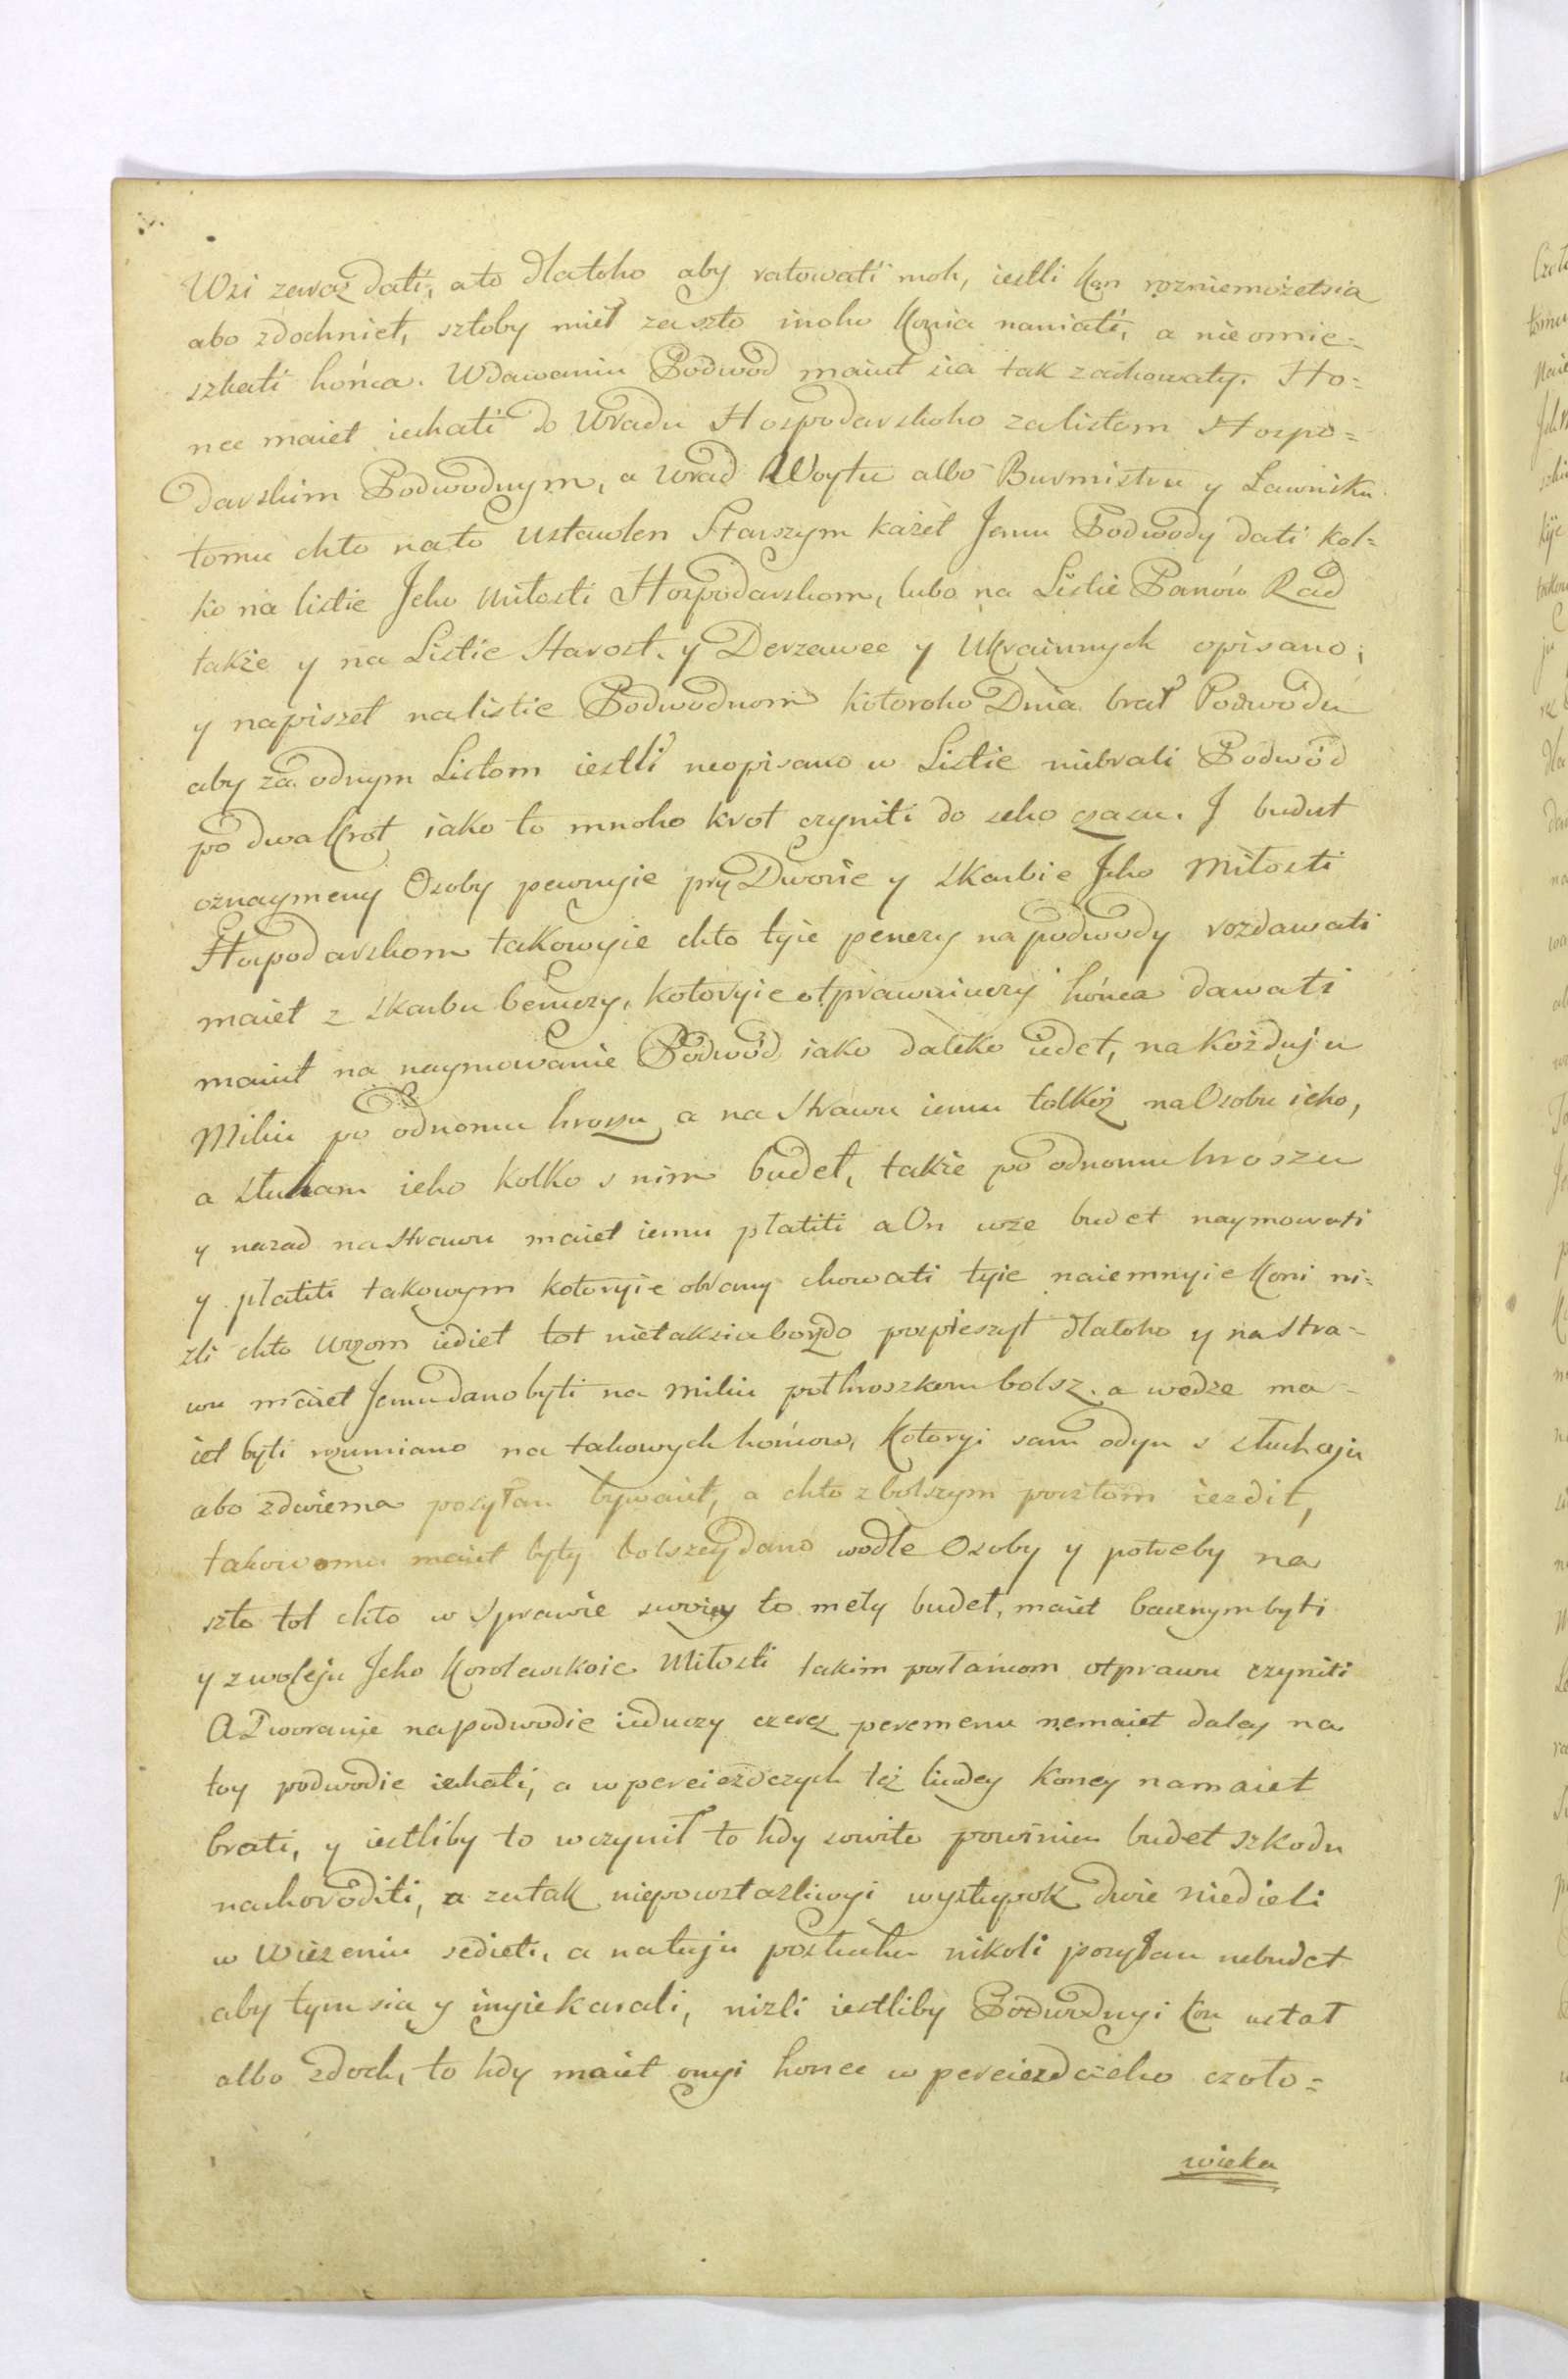 Wsi zaraz dati, a to dlatoho aby ratowati moh, iestli kon rozniemożetsia
abo zdochniet, sztoby miel za szto inoho konia naniati, a nieomie=
szkati hońca. Wdawaniu Podwod maiut sia tak zachowaty. Ho=
nec maiet iechati do Uradu Hospodarskoho zalistom Hospo=
darskim Podwodnym, a Urad Woytu albo Burmistru y Ławniku
tomu chto nato ustawlen Starszym każet Jemu Podwody dati kol=
ko na listie Jeho Miłosti Hospodarskom, lubo na Listie Panów Rad
także y na Listie Starost. y Derzawec y Ukrainnych opisano,
y napiszet nalistie Podwodnom kotoroho Dnia brał Podwodu
aby za odnym Listom iestli neopisano w Listie niebrali Podwód
po dwa krot iako to mnoho krot czyniti do seho czasu. J budut
oznaymeny Osoby pewnyie pry Dworie y Skarbie Jeho Miłosti
Hospodarskom takowyie chto tyie penezy na podwody rozdawati
maiet z Skarbu beruczy, kotoryie otprawuiuczy hońca dawati
maiut na naymowanie Podwód iako daleko iedet, na kożduju
Miliu po odnomu hroszu, a na Strawu iemu tolkoż na Osobu ieho,
a słuham ieho kolko s nim budet, także po odnomu hroszu
y nazad na strawu maiet iemu płatiti a On uże budet naymowati
y płatiti takowym kotoryie obrany chowati tyie naiemnyie koni ni=
żli chto wozom iediet tot nietaksia borzdo pospieszyt dlatoho y na Stra=
wu maiet Jemu dano byti na miliu połhroszkom bolsz. a wedże ma=
iet byti rozumiano na takowych hońcow, kotoryi sam odyn s słuhoju
abo zdwiema posyłan bywaiet, a chto zbolszym pocztom iezdit,
takowomu maiet byty bolszey dano wodle Osoby y potreby na
szto tot chto w Sprawie swoiey to mety budet, maiet bacznym byti
y z woleju Jeho Korolewskoie Miłosti takim posłańcom otprawu czyniti
A Dworanie na podwodie ieduczy czerez peremenu nemaiet daley na
toy podwodie iechati, a w pereiezdczych też ludey koney nemaiet
brati, y iestliby to wczynił to hdy sowito powinien budet szkodu
nahorodili, a za tak niepowstażliwyi wystupok dwie niedieli
w wiezeniu sedieti, a natuju posłuhu nikoli posyłan nebudet
aby tym sia y inyie karali, niżli iestliby Podwodnyi kon ustał
albo zdoch, to hdy maiet onyi honec w pereiezdczeho czoło=
wieka